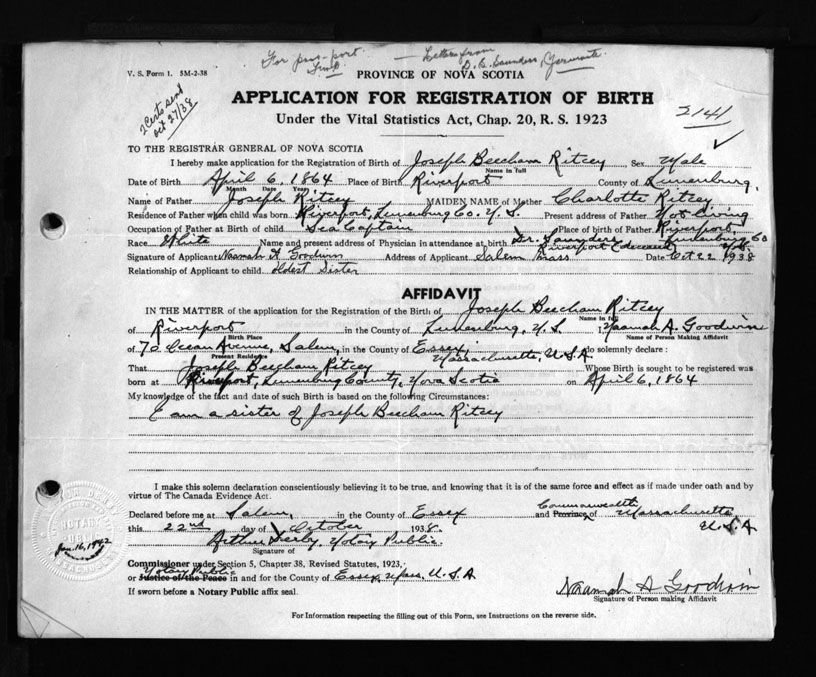 For pass-port
— Letter from
D. B. Saunders, Yarmouth.
V. S. Form 1. 5M-2-38
PROVINCE OF NOVA SCOTIA
2 Certs send
Oct 27/38
APPLICATION FOR REGISTRATION OF BIRTH
2141
Under the Vital Statistics Act, Chap. 20, R. S. 1923
TO THE REGISTRAR GENERAL OF NOVA SCOTIA
I hereby make application for the Registration of Birth of Joseph Beecham Ritcey Sex Male
Name in full
Date of Birth April 6, 1864 Place of Birth Riverport County of Lunenburg,
Month Date Year
Name of Father Joseph Ritcey MAIDEN NAME of Mother Charlotte Ritzey
Residence of Father when child was born Riverport, Lunenburg Co. N. S. Present address of Father Not living
Occupation of Father at Birth of child Sea Captain Place of birth of Father Riverport,
Lunenburg Co
Race White Name and present address of Physician in attendance at birth Dr. Saunders
Riverport (deceased) N.S.
Signature of Applicant Naamah A Goodwin Address of Applicant Salem Mass Date Oct 22 1938
Relationship of Applicant to child oldest sister
AFFIDAVIT
IN THE MATTER of the application for the Registration of the Birth of Joseph Beecham Ritcey
Name in full
of Riverport in the County of Lunenburg, N. S I Naamah A. Goodwin
Birth Place
Name of Person Making Affidavit
of 70 Ocean Avenue, Salem, in the County of Essex, Massachusetts, U.S.A. do solemnly declare :
Present Residence
That Joseph Beecham Ritcey Whose Birth is sought to be registered was
born at Riverport, Lunenburg County, Nova Scotia on April 6, 1864
My knowledge of the fact and date of such Birth is based on the following Circumstances:
I am a sister of Joseph Beecham Ritcey
I make this solemn declaration conscientiously believing it to be true, and knowing that it is of the same force and effect as if made under oath and by
virtue of The Canada Evidence Act.
Commonwealth
Declared before me at Salem, in the County of Essex and Province of Massachusetts
U.S.A
this 22nd day of October 1938.
Arthur Derby, Notary Public.
Signature of
NOTARY
Jan. 16, 1942
Commissioner under Section 5, Chapter 38, Revised Statutes, 1923,
Notary Public
or Justice of the Peace in and for the County of Essex, Mass, U.S.A
If sworn before a Notary Public affix seal.
Naamah A Goodwin
Signature of Person making Affidavit
For Information respecting the filling out of this Form, see Instructions on the reverse side.